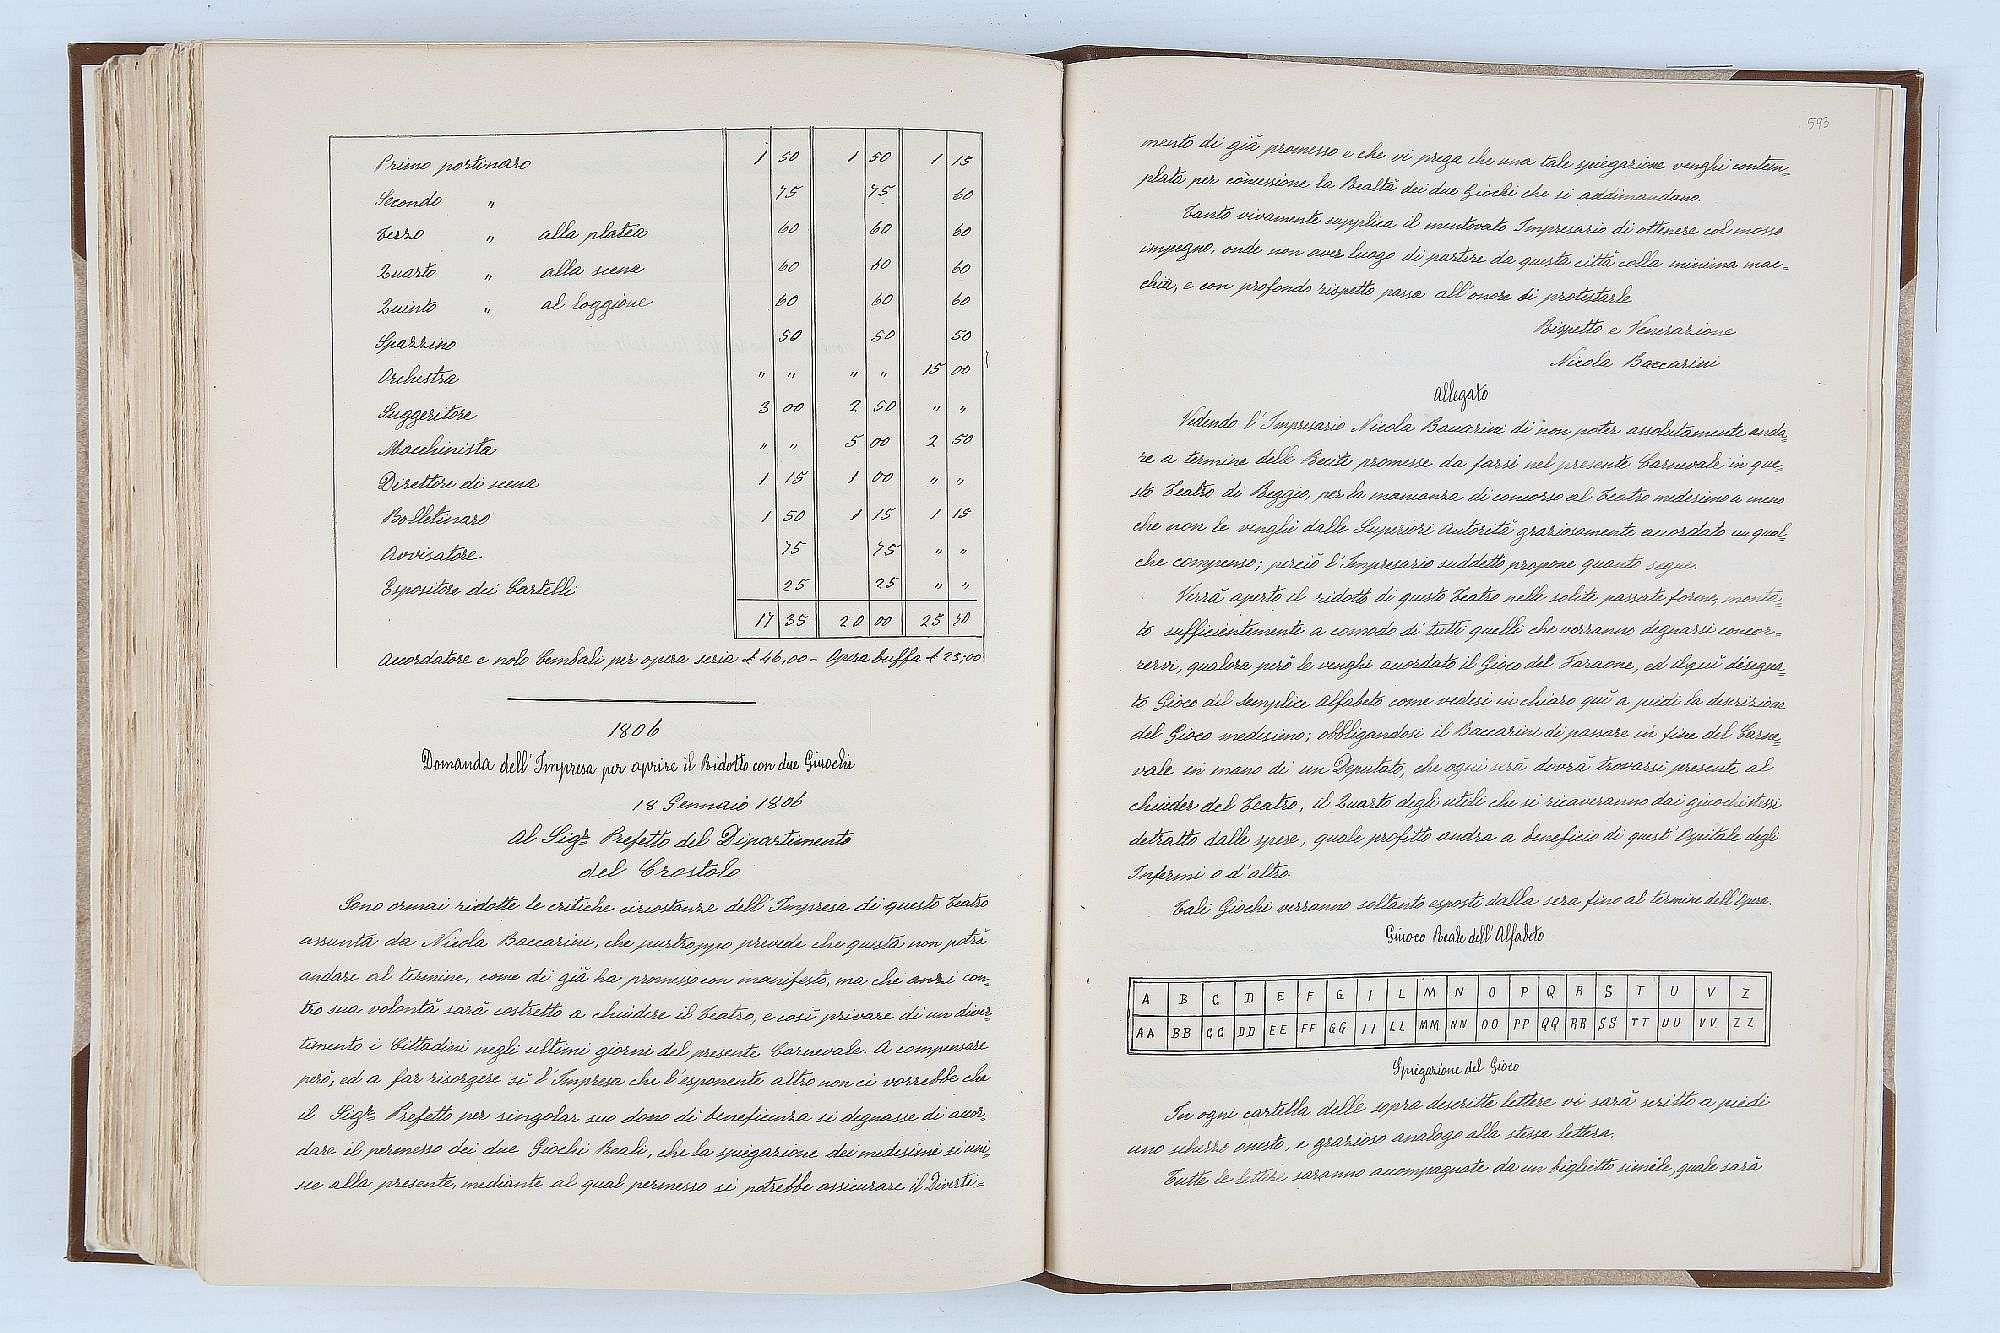 Primo portinaro 1 50 1 50 1 15
Secondo " 75 75 60
Terzo " alla platea 60 60 60
Quarto " alla scena 60 60 60
Quinto " al loggione 60 60 60
Spazzino 50 50 50
Orchestra " " " " 15 00
Suggeritore 3 00 2 50 " "
Macchinista " " 5 00 2 50
Direttore di scena 1 15 1 00 " "
Bolletinaro 1 50 1 15 1 15
Avvisatore. 75 75 " "
Espositore dei Cartelli 25 25 " "
17 35 20 00 25 30
Accordatore e nolo Cembali per opera seria £ 46,00 - Opera buffa £ 25,00
1806
Domanda dell'Impresa per aprire il Ridotto con due Giuochi
18 Gennaio 1806
Al Sigr. Prefetto del Dipartimento
del Crostolo
Sono ormai ridotte le critiche circostanze dell'Impresa di questo Teatro
assunta da Nicola Baccarini, che purtroppo prevede che questa non potrà
andare al termine, come di già ha promesso con manifesto, ma che anzi con-
tro sua volontà sarà costretto a chiudere il Teatro, e così privare di un diver-
timento i Cittadini negli ultimi giorni del presente Carnevale. A compensare
però, ed a far risorgere sì l'Impresa che l'esponente altro non ci vorrebbe che
il Sigr. Prefetto per singolar suo dono di beneficenza si degnasse di accor-
dare il permesso dei due Giochi Reali, che la spiegazione dei medesimi si uni-
sce alla presente, mediante al qual permesso si potrebbe assicurare il Diverti-
593
mento di già promesso e che vi prega che una tale spiegazione venghi contem-
plata per concessione la Realtà dei due Giochi che si addimandano.
Tanto vivamente supplica il mentovato Impresario di ottenere col mosso
impegno, onde non aver luogo di partire da questa città colla minima mac-
chia, e con profondo rispetto passa all'onore di protestarle
Rispetto e Venerazione
Nicola Baccarini
Allegato
Vedendo l'Impresario Nicola Baccarini di non poter assolutamente anda-
re a termine delle Recite promesse da farsi nel presente Carnevale in que-
sto Teatro di Reggio, per la mancanza di concorso al Teatro medesimo a meno
che non le venghi dalle Superiori Autorità graziosamente accordato un qual-
che compenso; perciò l'Impresario suddetto propone quanto segue.
Verrà aperto il ridotto di questo Teatro nelle solite passate forme, monta-
to sufficientemente a comodo di tutti quelli che vorranno degnarsi concor-
rervi, qualora però le venghi accordato il Gioco del Faraone, ed il quì disegna-
to Gioco del semplice Alfabeto come vedesi in chiaro quì a piedi la descrizione
del Gioco medesimo; obbligandosi il Baccarini di passare in fine del Carne-
vale in mano di un Deputato, che ogni serà dovrà trovarsi presente al
chiuder del Teatro, il Quarto degli utili che si ricaveranno dai giuochi stessi
detratto dalle spese, quale profitto andra a beneficio di quest'Ospitale degli
Infermi o d'altro.
Tali Giochi verranno soltanto esposti dalla sera fino al termine dell'Opera.
Giuoco Reale dell'Alfabeto
A B C D E F G I L M N O P Q R S T U V Z
AA BB CC DD EE FF GG II LL MM NN OO PP QQ RR SS TT UU VV ZZ
Spiegazione del Gioco
In ogni cartella delle sopra descritte lettere vi sarà scritto a piedi
uno scherzo onesto, e grazioso analogo alla stessa lettera.
Tutte le lettere saranno accompagnate da un biglietto simile, quale sarà